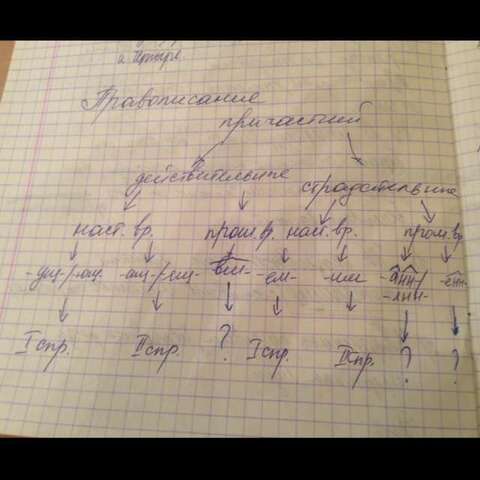 и Петыре
Правописание
причастий
действительные
страдательные
наст. вр. прош. вр. наст. вр. прош. вр.
-ущ-/-ющ- -ащ-/-ящ- -вш- -ем- -им- -анн-/ -енн-
-янн-
I спр. II спр. ? I спр. II спр. ? ?